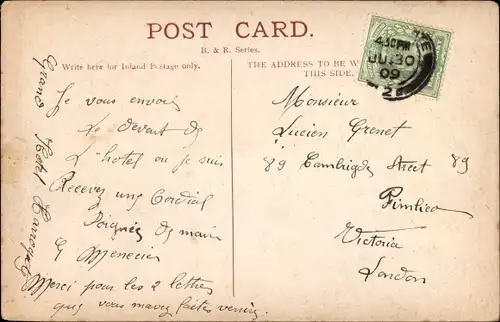 POST CARD.
B. & R. Series.
Write here for Inland Postage only.
THE ADDRESS TO BE W
THIS SIDE.
4.30 PM
JU 30
09
Grand Hotel
Je vous envoi
Le devant de
L'hotel ou je suis
Recevez une Cordial
Poignée de main
Merci pour les 2 lettres
que vous mavez faites venir
Monsieur
Lucien Grenet
89 Cambrigde Street 89
Pimlico
Victoria
London